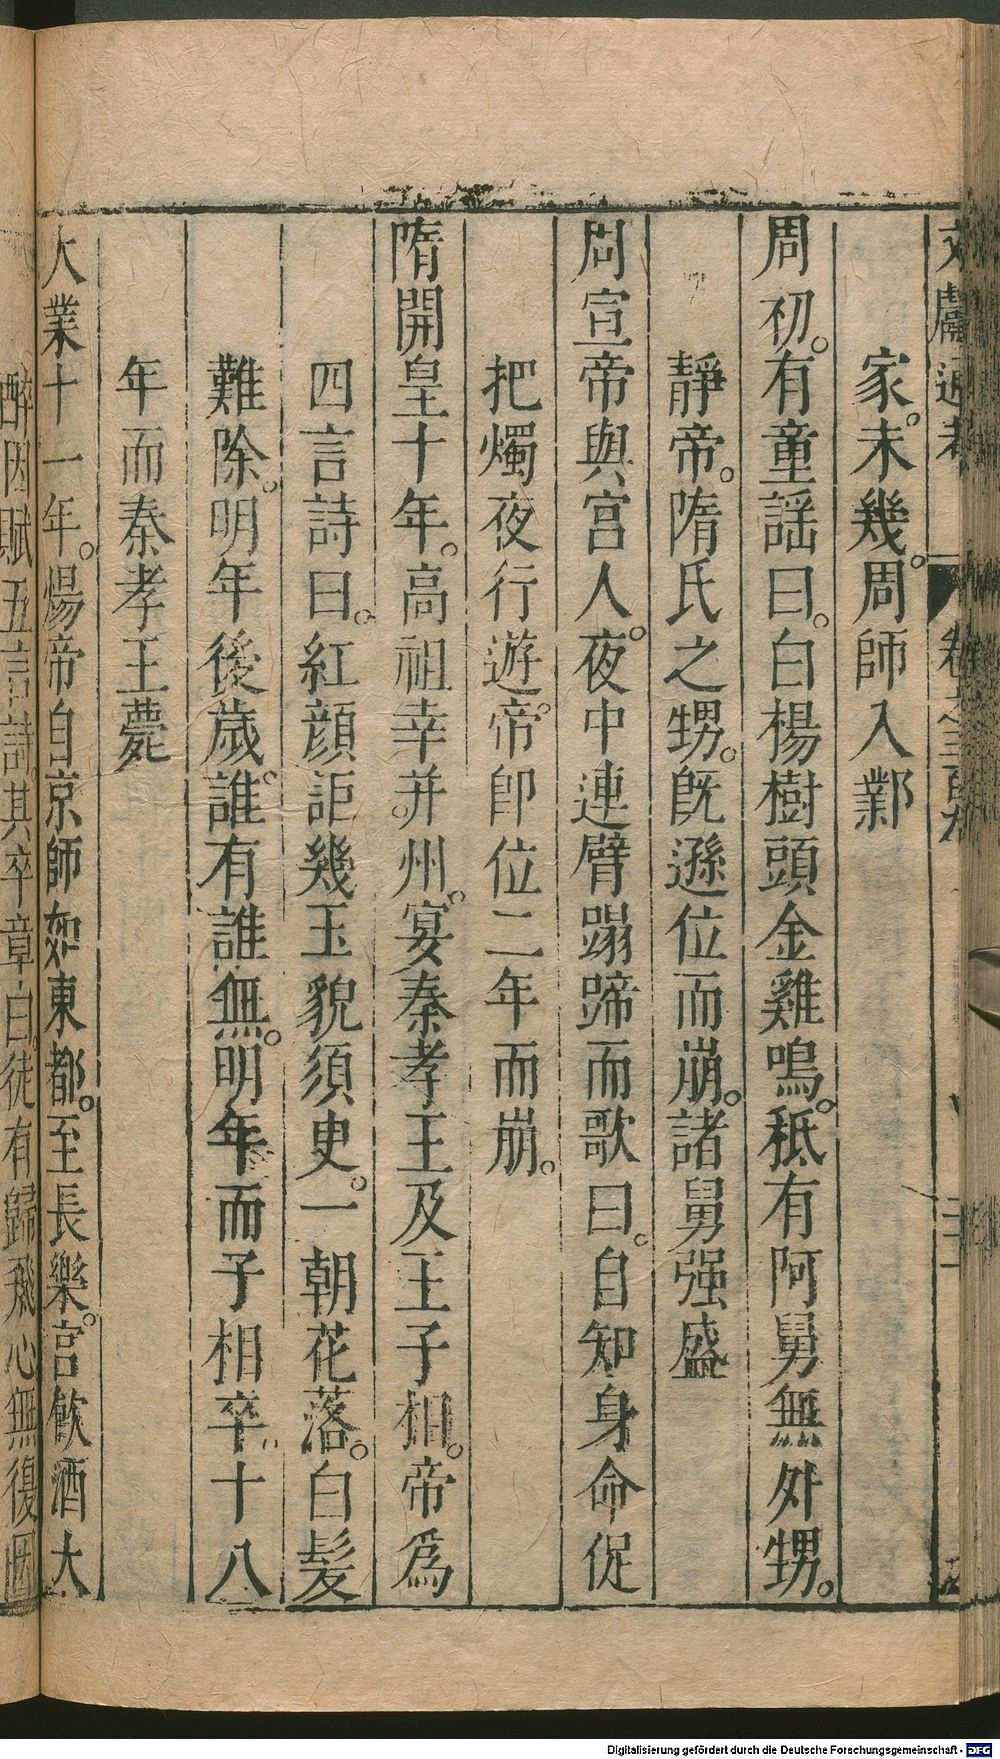 文獻通考 卷之三百九
家。未幾。周師入鄴
周初。有童謡曰。白楊樹頭金雞鳴。秪有阿舅無外甥。
靜帝。隋氏之甥。旣遜位而崩。諸舅强盛
周宣帝與宫人。夜中連臂蹋蹄而歌曰。自知身命促
把燭夜行遊。帝卽位二年而崩。
隋開皇十年。高祖幸并州。宴秦孝王及王子相。帝爲
四言詩曰。紅顔詎幾。玉貌須臾。一朝花落。白髪
難除。明年後歲。誰有誰無。明年而子相卒。十八
年而秦孝王薨
大業十一年。煬帝自京師如東都。至長樂。宫飲酒大
醉因賦五言詩。其卒章曰。徒有歸飛心無復因
Digitalisierung gefördert durch die Deutsche Forschungsgemeinschaft - DFG